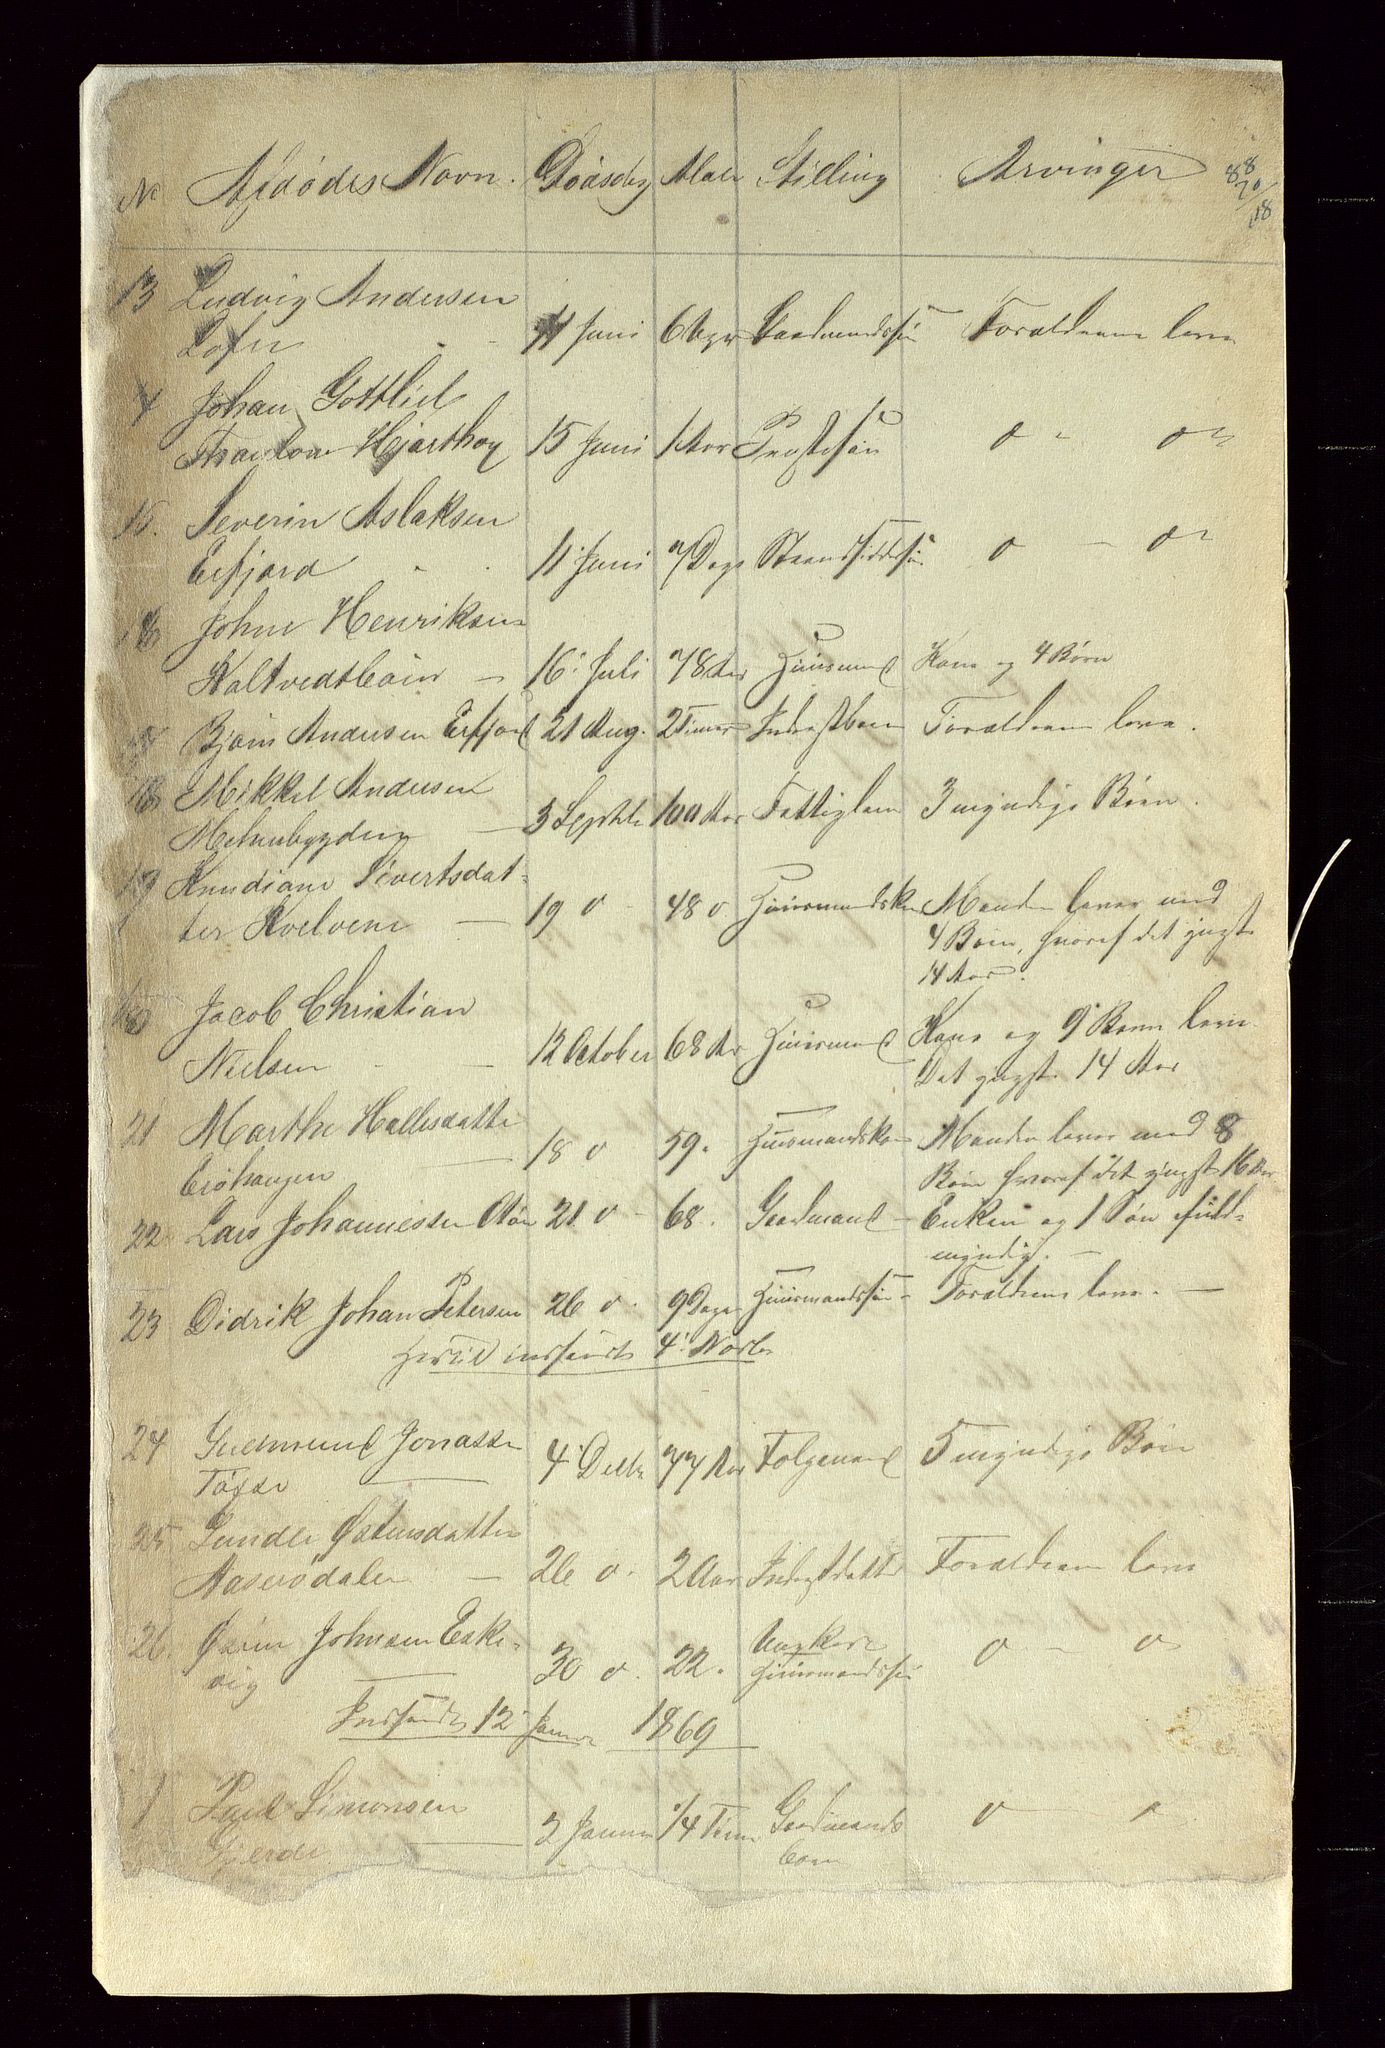 No Afdødes Navn. Dødsdag Alder Stilling Arvinger
88
70/18
13 Ludvig Andersen
11 Juni 6 Uger Gaardmandssøn Forældrene leve
4 Johan Gottlieb
Hjorthoy 15 Juni 1 Aar Præstesøn d - d
15. Severin Aslaksen
Erfjord 11 Juni 7 Dage Strandsiddersøn d - d
16 Johne Henriksen
16 Juli 78 Aar Huusmand Kone og 4 Børn
Bjørn Andersen Erfjord 21 Aug. 2 Timer Forældrene leve.
18 Mikkel Andersen
3 Septb 100 Aar Fattiglem 3 myndige Børn.
19 Knudiane Sivertsdat-
ter Kvelvene — 19 d 48 d Huusmandskone Manden lever med
4 Børn, hvoraf det yngste
14 Aar.
Jacob Christian
Nielsen 12 October 68 Aar Huusmand Kone og 9 Børn leve
Det yngste 14 Aar
21 Marthe Hallesdatter
18 d 59. Huusmandskone Manden lever med 8
Børn hvoraf det yngste 16 Aar
22 Lars Johannessen 21 d - 68. Gaardmand - Enken og 1 Søn fuld-
myndig. —
23 Didrik Johan Petersen 26 d. 9 Dage Huusmandssøn - Forældrene leve. —
Hertil indsendt 4. Novbr
24 Gudmund Jonassen
4 Decbr 77 Aar Folgemand 5 myndige Børn
25 Østensdatter
— 26 d. 2 Aar Forældrene leve
26 Johnsen Eske-
vig 30 d. 22. Ungkarl
Huusmandssøn d - d
Indsendt 12 Januar 1869
1 Paul Simonsen
Gjerde 3 Januar 1/4 Time Gaardmands
barn d